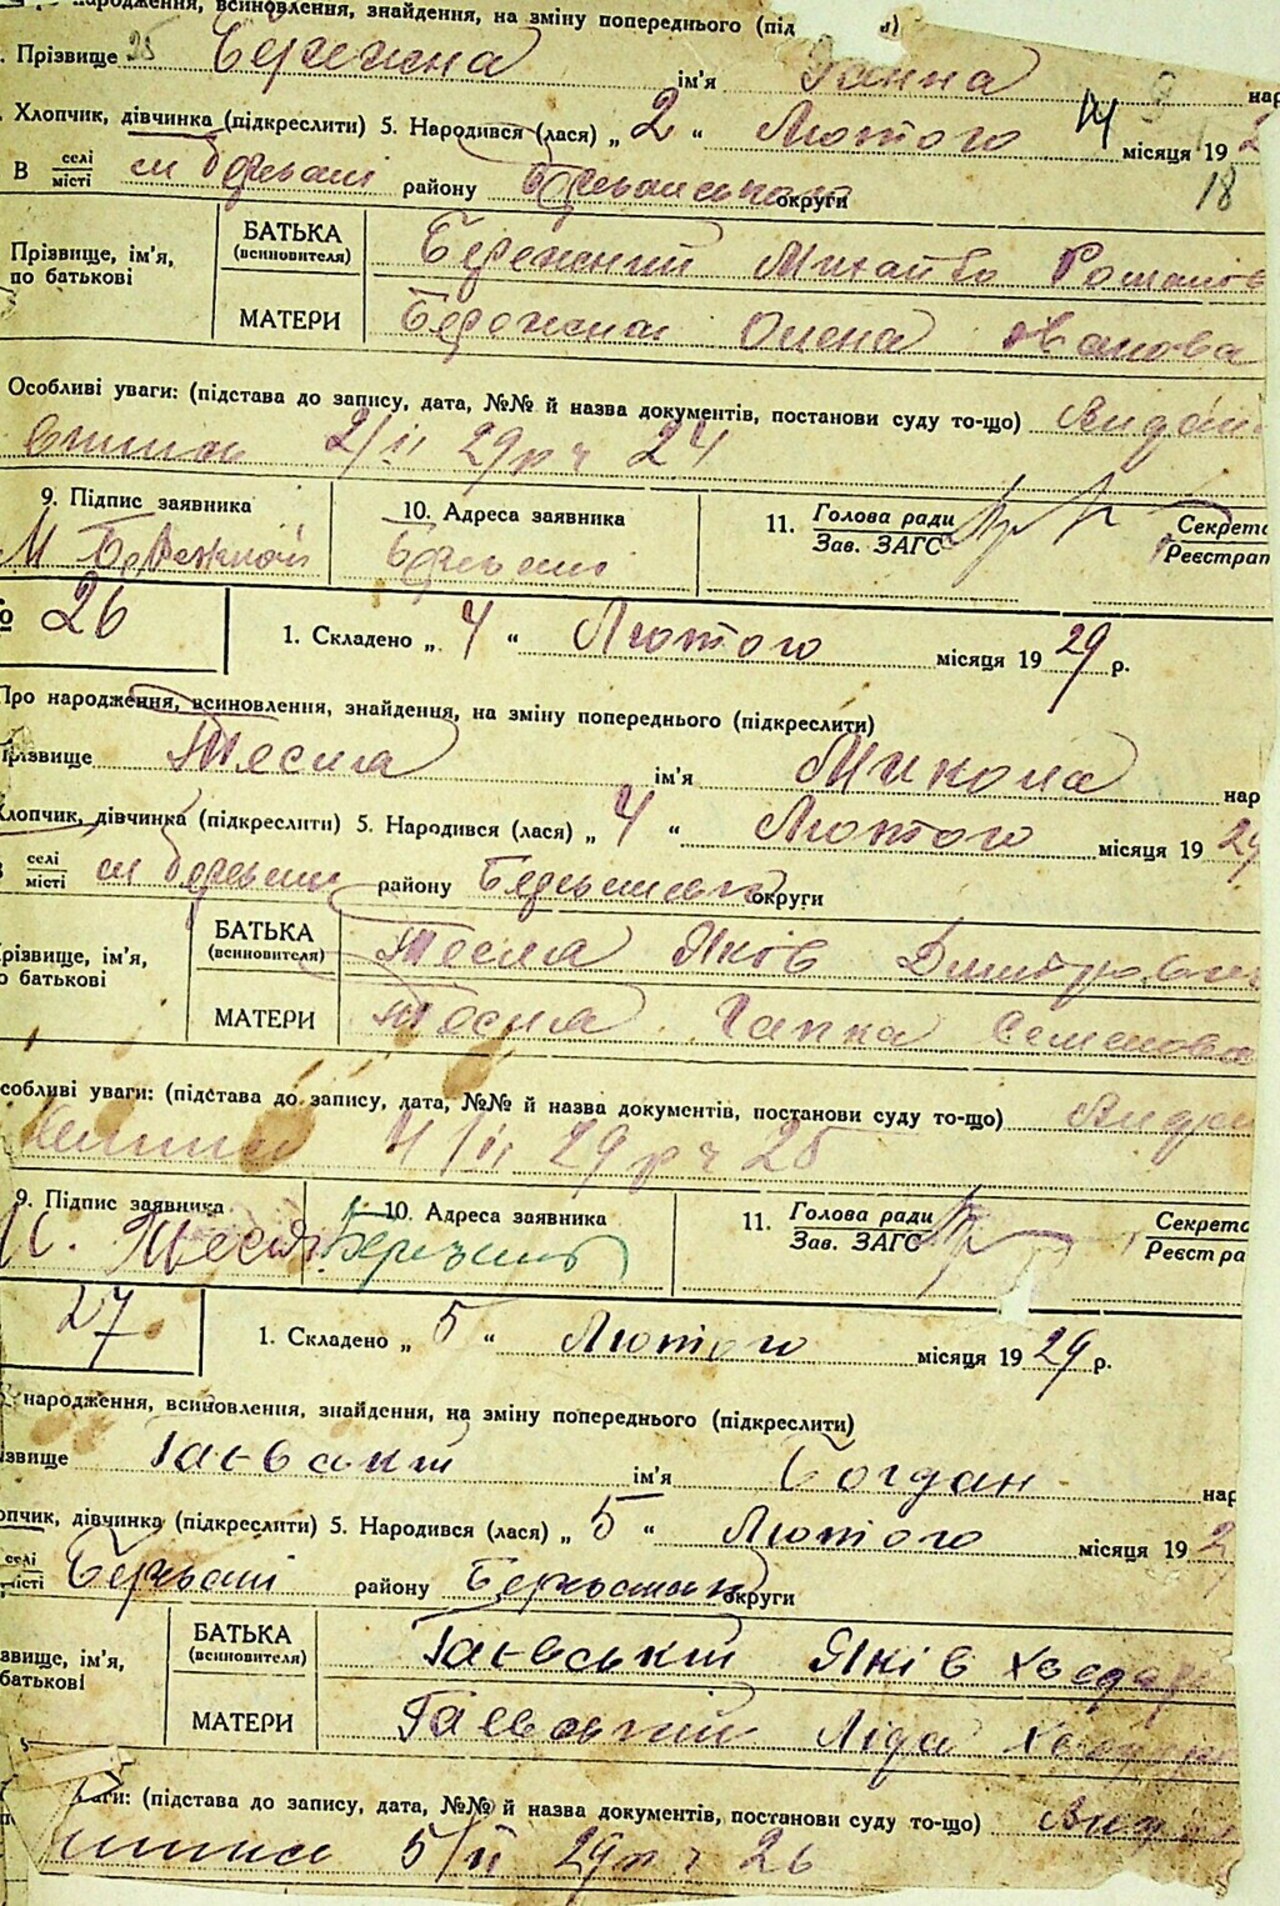 народження, всиновлення, знайдення, на зміну попереднього (під
Прізвище 25 Бережна ім'я Ганна нар
Хлопчик, дівчинка (підкреслити) 5. Народився (лася) „ 2 “ Лютого місяця 19 2
14 9
18
В селі місті району округи
Прізвище, ім'я, по батькові
БАТЬКА (всиновителя) Бережний Михайло Романів
МАТЕРИ Бережна Олена Іванова
Особливі уваги: (підстава до запису, дата, №№ й назва документів, постанови суду то-що) Видан
2/II 29 р ч 24
9. Підпис заявника 10. Адреса заявника 11. Голова ради Зав. ЗАГС Секрета Реєстрат
М Бережной
26 1. Складено „ 4 “ Лютого місяця 19 29 р.
Про народження, всиновлення, знайдення, на зміну попереднього (підкреслити)
Прізвище Тесла ім'я Микола нар
Хлопчик, дівчинка (підкреслити) 5. Народився (лася) „ 4 “ Лютого місяця 19 29
селі місті району округи
прізвище, ім'я, по батькові
БАТЬКА (всиновителя) Тесла Яків Дмитрович
МАТЕРИ Тесла Гапка Семенова
особливі уваги: (підстава до запису, дата, №№ й назва документів, постанови суду то-що)
4/II 29 р ч 25
9. Підпис заявника 10. Адреса заявника 11. Голова ради Зав. ЗАГС Секрета Реєстра
27 1. Складено „ 5 “ Лютого місяця 19 29 р.
народження, всиновлення, знайдення, на зміну попереднього (підкреслити)
звище ім'я Богдан нар
опчик, дівчинка (підкреслити) 5. Народився (лася) „ 5 “ Лютого місяця 19 2
селі місті району округи
звище, ім'я, батькові
БАТЬКА (всиновителя) Гаєвський Яків
МАТЕРИ Гаєвський Ліда
ваги: (підстава до запису, дата, №№ й назва документів, постанови суду то-що)
5/II 29 р ч 26